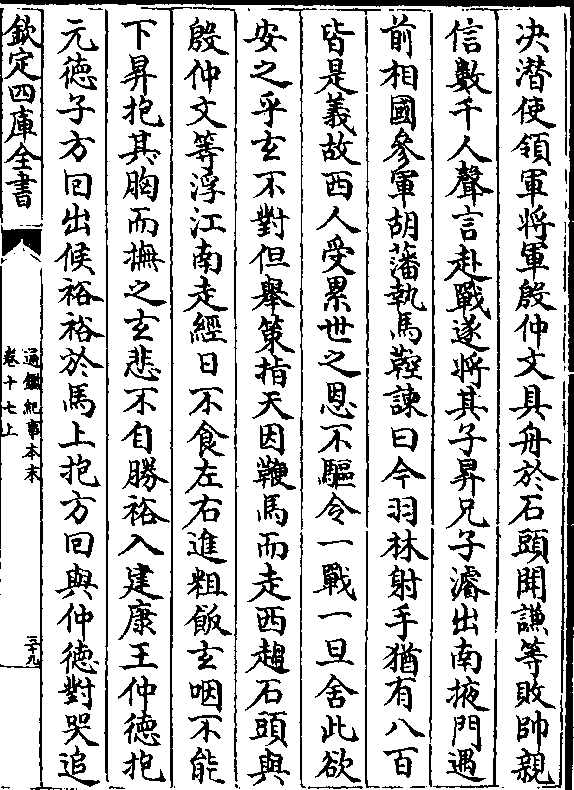 決潛使領軍將軍殷仲文具舟於石頭聞謙等敗帥親
信數千人聲言赴戰遂將其子昇兄子濬出南掖門遇
前相國參軍胡藩執馬鞚諫曰今羽林射手猶有八百
皆是義故西人受累世之恩不驅令一戰一旦舍此欲
安之乎玄不對但舉策指天因鞭馬而走西趨石頭與
殷仲文等浮江南走經日不食左右進粗飯玄咽不能
下昇抱其胸而撫之玄悲不自勝裕入建康王仲徳抱
元徳子方回出候裕裕於馬上抱方回與仲徳對哭追
欽定四庫全書
通鑑紀事本末
卷十七上
三十九